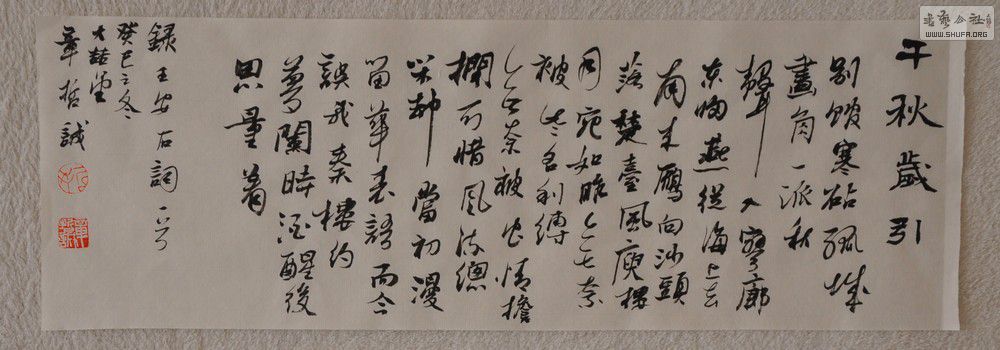 千秋歲引
别館寒砧孤城
畫角一派秋
聲入寥廓
东歸燕從海上去
南来鴈向沙頭
落楚臺風庾樓
月宛如昨無奈
被些名利縛
無奈被他情擔
擱可惜風流總
閒却當初漫
留華表語而今
誤我秦樓約
夢闌時酒醒後
思量着
録王安石詞一首
癸巳之冬
章哲誠
書藝公社
WWW.SHUFA.ORG